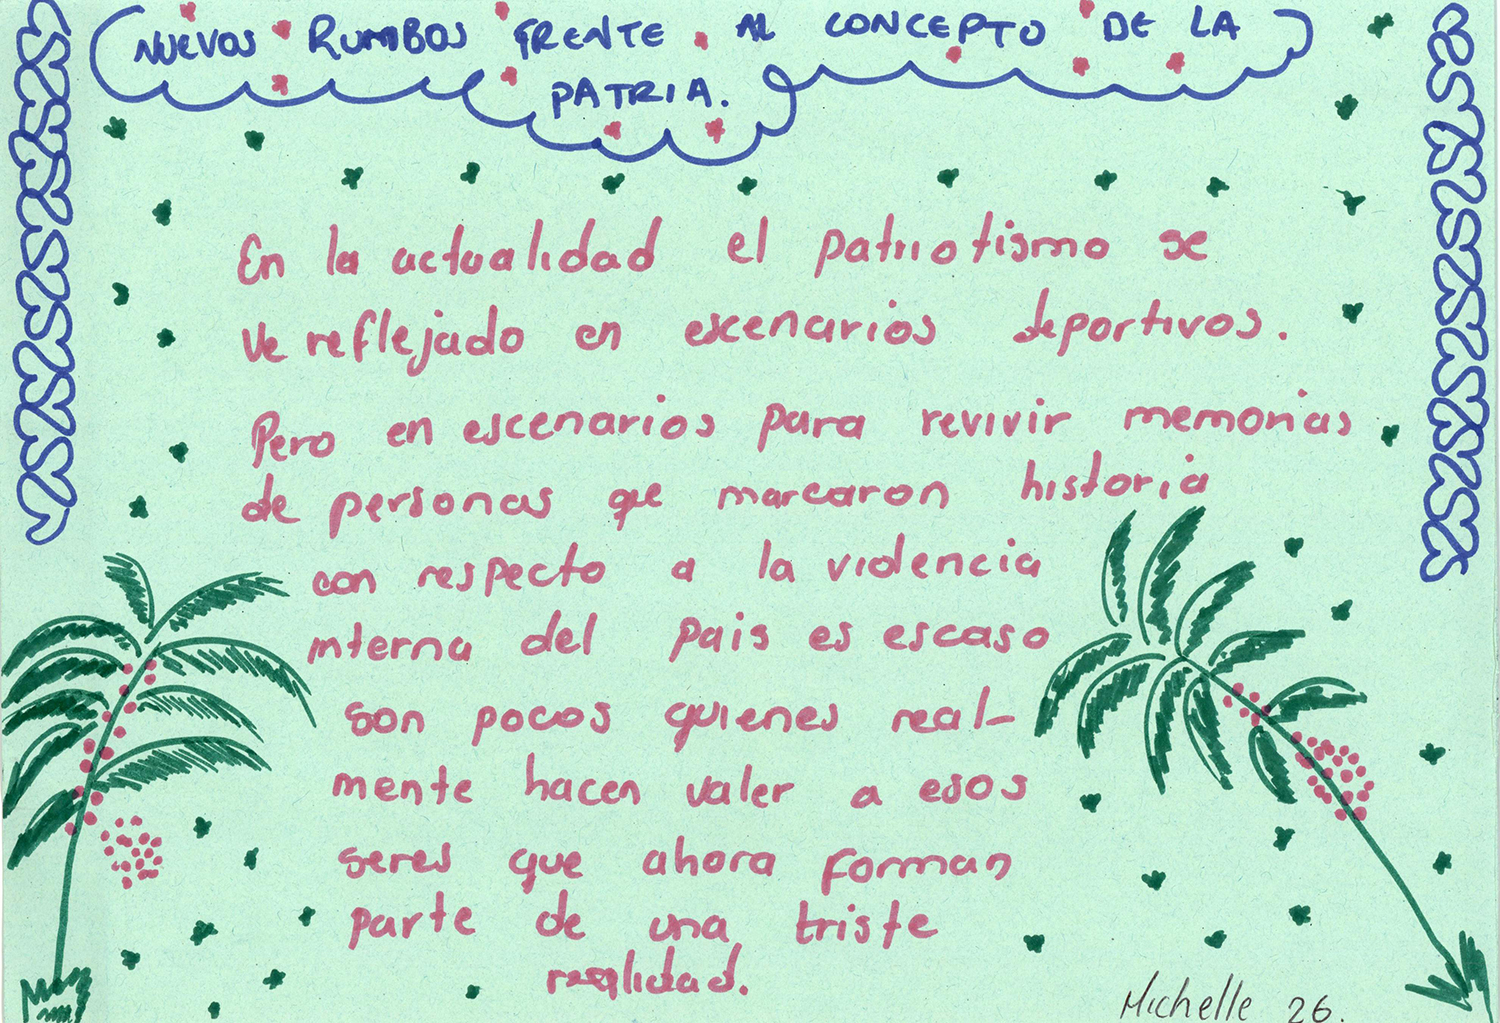 NUEVOS RUMBOS FRENTE AL CONCEPTO DE LA
PATRIA.
En la actualidad el patriotismo se
ve reflejado en escenarios deportivos.
Pero en escenarios para revivir memorias
de personas que marcaron historia
con respecto a la violencia
interna del pais es escaso
son pocos quienes real-
mente hacen valer a esos
seres que ahora forman
parte de una triste
realidad.
Michelle 26.